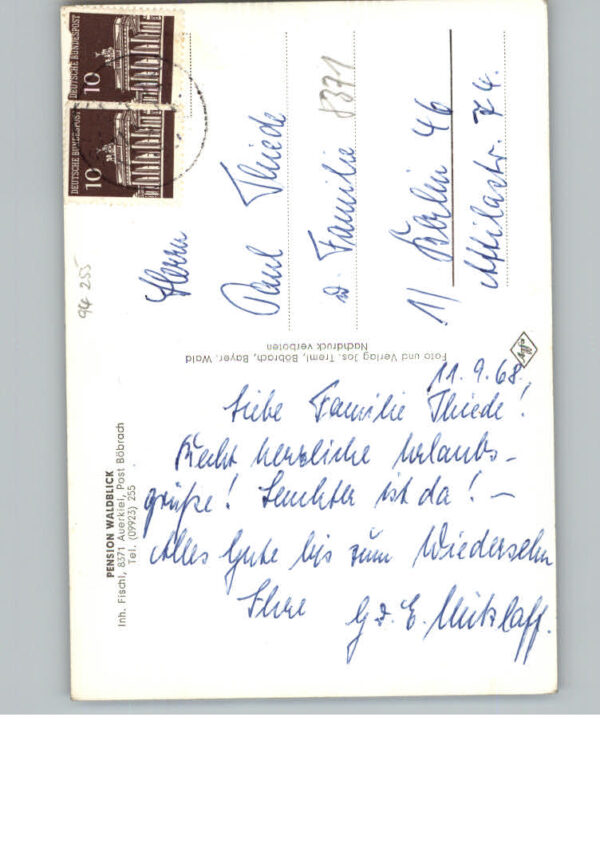 11.9.68.
Liebe Familie Thiede!
Recht herzliche Urlaubs-
grüße! ist da! -
Alles Gute bis zum Wiedersehn
Ihre G. u. E.
Herrn
Paul Thiede
u. Familie
1/ Berlin 46
Attilastr. 74.
8371
94 255
DEUTSCHE BUNDESPOST
10
DEUTSCHE BUNDESPOST
10
Foto und Verlag Jos. Treml, Böbrach, Bayer. Wald
Nachdruck verboten
Agfa
PENSION WALDBLICK
Inh. Fischl, 8371 Auerkiel, Post Böbrach
Tel. (09923) 255